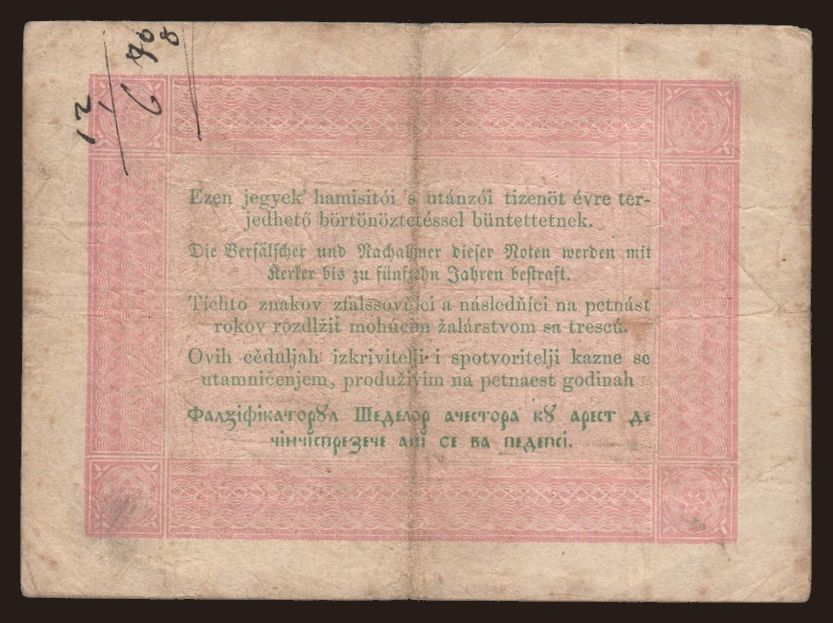 12/6 708
Ezen jegyek' hamisitói 's utánzói tizenöt évre ter-
jedhető börtönöztetéssel büntettetnek.
Die Verfälscher und Nachahmer dieser Noten werden mit
Kerker bis zu fünfzehn Jahren bestraft.
Tíchto znakov zfalssovělci a následňíci na petnást
rokov rozdlžiť mohúcím žalárstvom sa trescú.
Ovih cěduljah izkrivitelji i spotvoritelji kazne se
utamničenjem, produživim na petnaest godinah
Фалзіфікаторꙋл Шеделор ачестора кꙋ арест де
чінчіспрезече ані се ва педепсі.